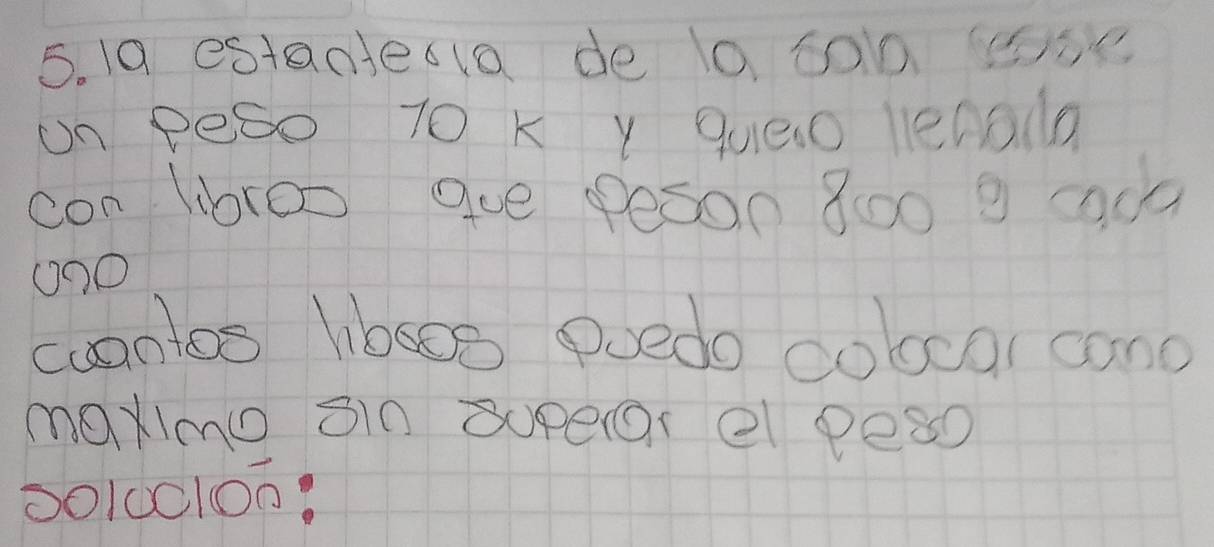 5. la estanteria de la sala
un peso 70 k y quiero llenarla
con libros que pesan 800 g cada
uno
cuantos libros puedo colocar como
maximo sin superar el peso
solución: